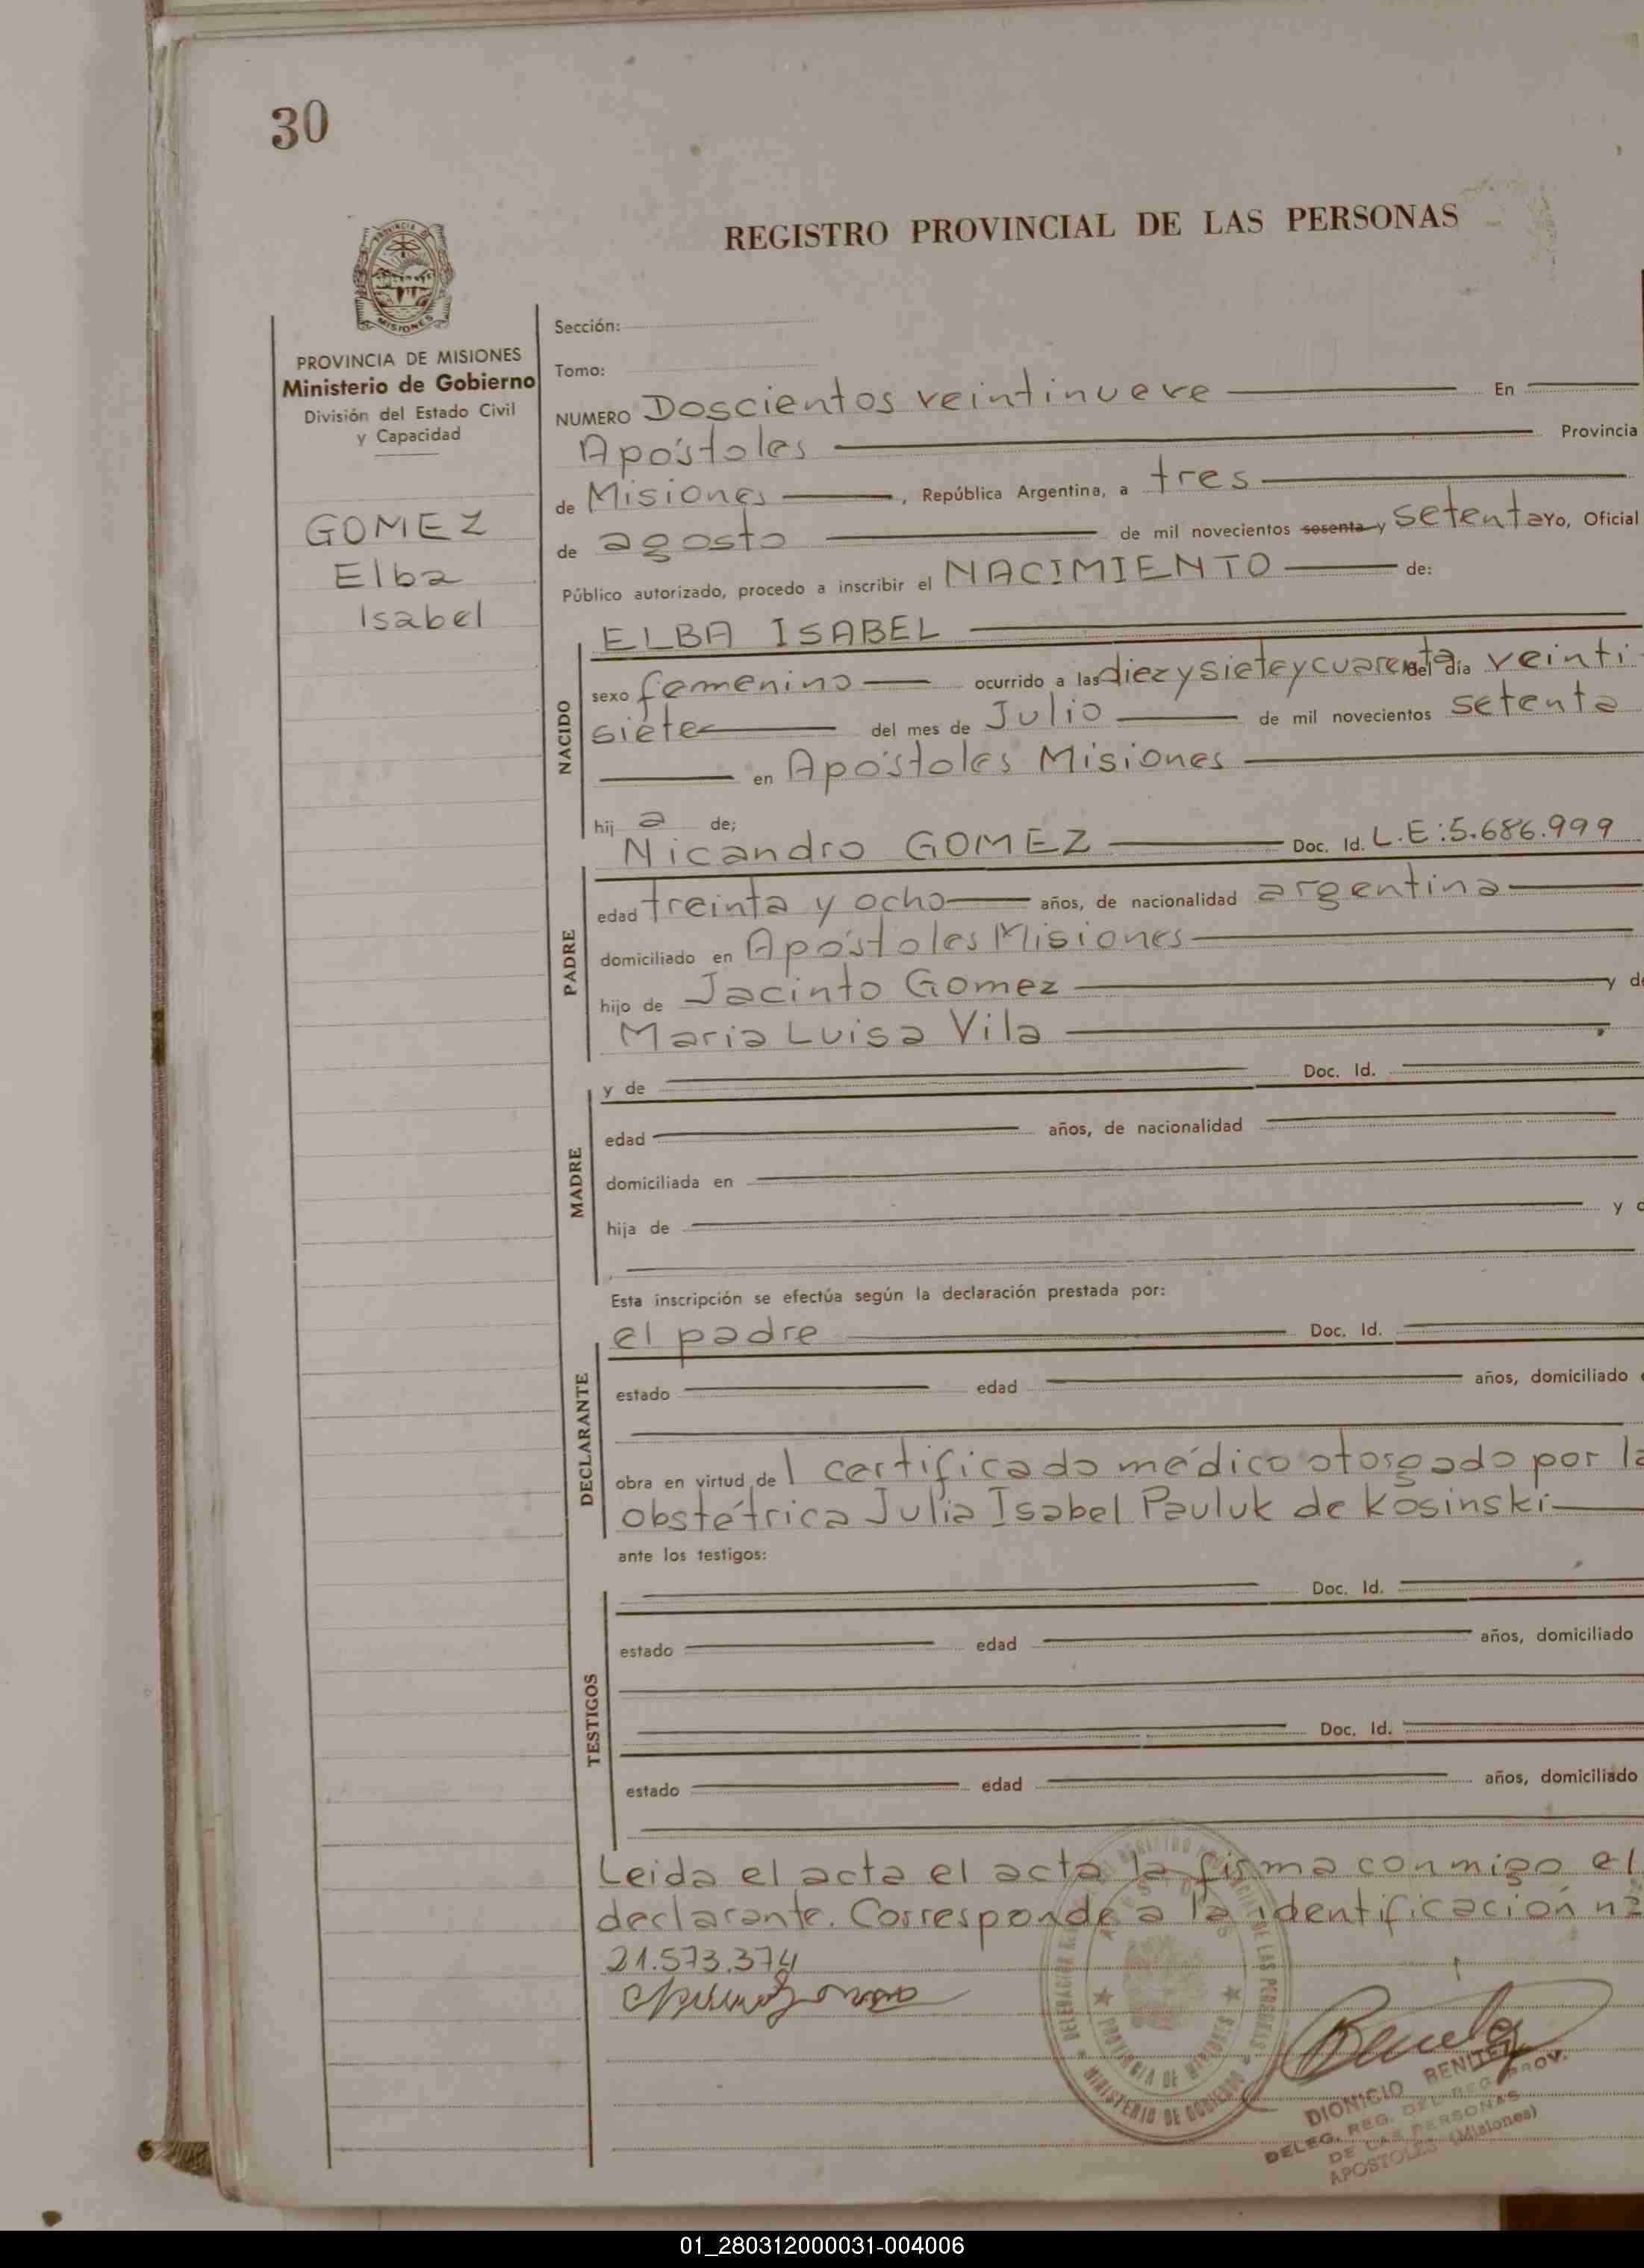 30
REGISTRO PROVINCIAL DE LAS PERSONAS
MISIONES
PROVINCIA DE MISIONES
Ministerio de Gobierno
División del Estado Civil
y Capacidad
GOMEZ
Elba
Isabel
Sección:
Tomo:
NUMERO Doscientos veintinueve En
Apóstoles Provincia
de Misiones, República Argentina, a tres
de agosto de mil novecientos sesenta y setenta Yo, Oficial
Público autorizado, procedo a inscribir el NACIMIENTO de:
NACIDO
ELBA ISABEL
sexo femenino ocurrido a las diez y siete y cuarenta del día veinti
siete del mes de Julio de mil novecientos setenta
en Apóstoles Misiones
hij a de;
PADRE
Nicandro GOMEZ Doc. Id. L.E:5.686.999
edad treinta y ocho años, de nacionalidad argentina
domiciliado en Apóstoles Misiones
hijo de Jacinto Gomez y de
Maria Luisa Vila
MADRE
y de Doc. Id.
edad años, de nacionalidad
domiciliada en
hija de y
Esta inscripción se efectúa según la declaración prestada por:
DECLARANTE
el padre Doc. Id.
estado edad años, domiciliado
obra en virtud de l certificado médico otorgado por la
obstétrica Julia Isabel Pauluk de Kosinski
ante los testigos:
TESTIGOS
Doc. Id.
estado edad años, domiciliado
Doc. Id.
estado edad años, domiciliado
Leida el acta el acta la firma conmigo el
declarante. Corresponde a la identificación nº
21.573.374
PROVINCIA DE MISIONES
MINISTERIO DE GOBIERNO
DIONICIO BENITEZ
DELEG. REG. DEL REG. PROV.
DE LAS PERSONAS
APOSTOLES (Misiones)
01_280312000031-004006